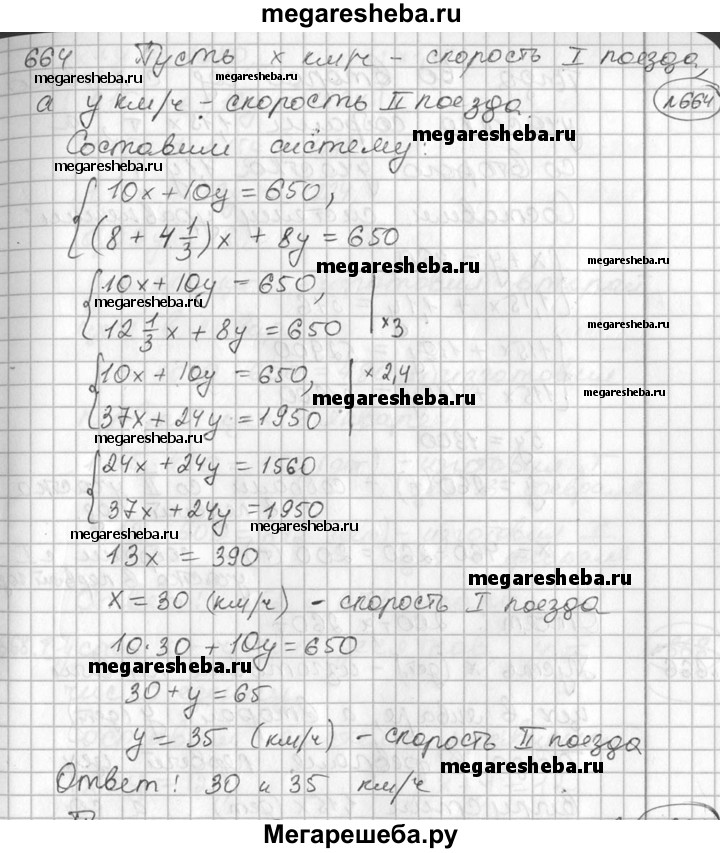 megaresheba.ru
664 Пусть x км/ч - скорость I поезда,
megaresheba.ru megaresheba.ru
а y км/ч - скорость II поезда. №664
Составим систему: megaresheba.ru
megaresheba.ru
10x + 10y = 650,
(8 + 4 1/3)x + 8y = 650
megaresheba.ru megaresheba.ru
10x + 10y = 650,
megaresheba.ru megaresheba.ru
12 1/3 x + 8y = 650 | ×3
10x + 10y = 650, | × 2,4
megaresheba.ru megaresheba.ru
37x + 24y = 1950
megaresheba.ru
24x + 24y = 1560
37x + 24y = 1950
megaresheba.ru megaresheba.ru
13x = 390
megaresheba.ru
x = 30 (км/ч) - скорость I поезда
10·30 + 10y = 650
megaresheba.ru
30 + y = 65
y = 35 (км/ч) - скорость II поезда
megaresheba.ru
Ответ: 30 и 35 км/ч
Мегарешеба.ру